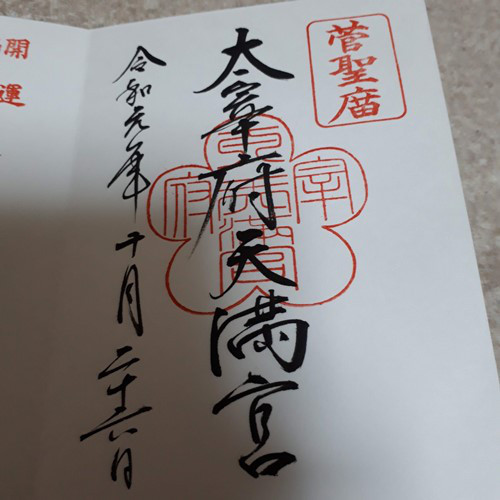 菅聖廟
太宰府天満宮
令和元年十月二十六日
開運